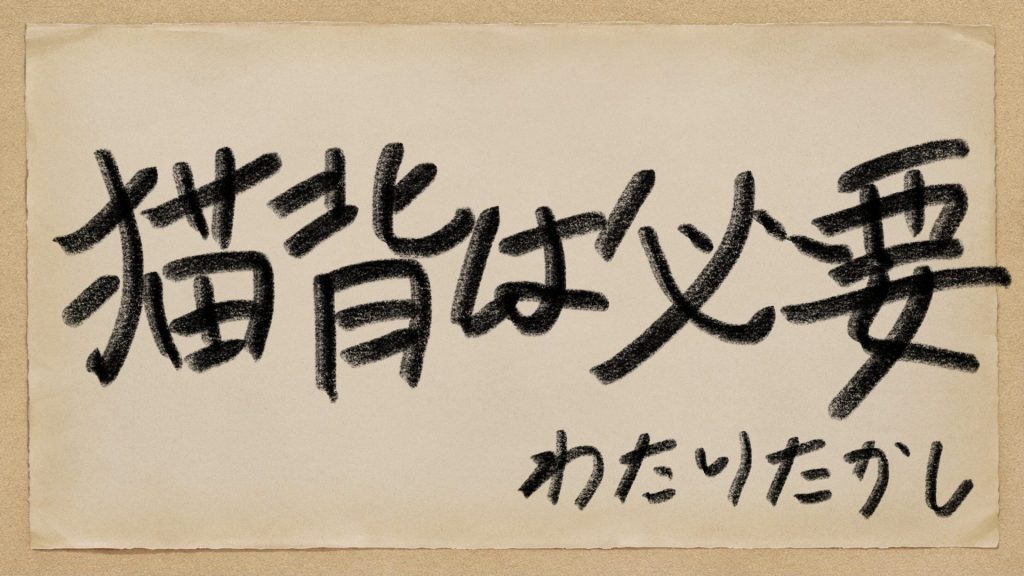 猫背は必要
わたりたかし